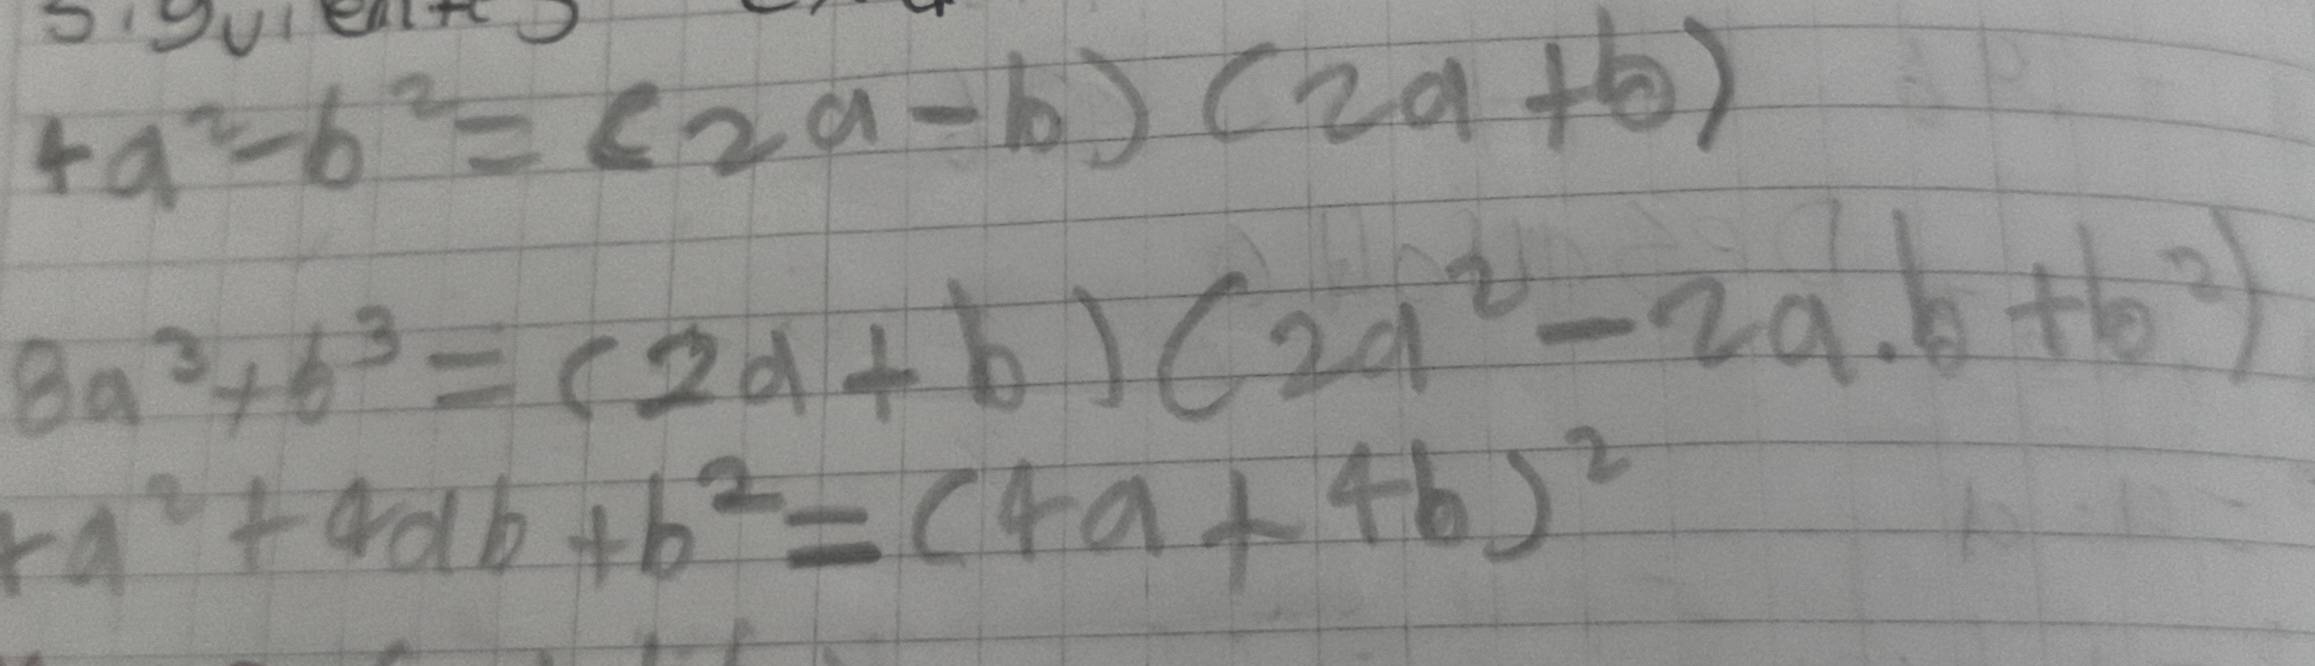 siguientes
4a²-b² = (2a-b) (2a+b)
8a³+b³ = (2a+b) (2a²-2a.b+b²)
4a²+4ab+b² = (4a+4b)²